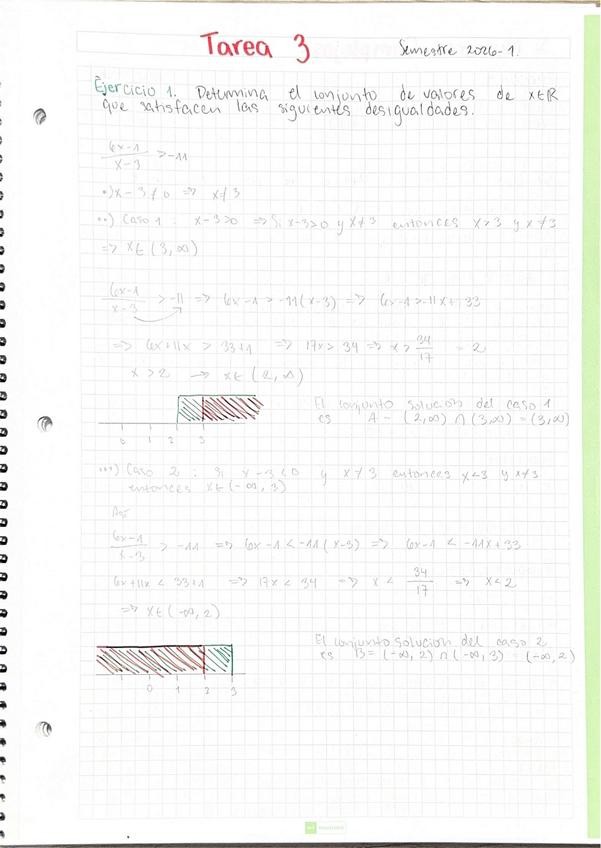 Tarea 3
Semestre 2026-1.
Ejercicio 1. Determina el conjunto de valores de x∈R
que satisfacen las siguientes desigualdades.
6x-1/x-3 > -11
•) x-3≠0 => x≠3
••) Caso 1: x-3>0 => Si x-3>0 y x≠3 entonces x>3 y x≠3
=> x∈(3,∞)
6x-1/x-3 > -11 => 6x-1 > -11(x-3) => 6x-1 > -11x+33
=> 6x+11x > 33+1 => 17x > 34 => x > 34/17 = 2
x>2 -> x∈(2,∞)
El conjunto solución del caso 1
es A = (2,∞) ∩ (3,∞) = (3,∞)
0 1 2 3
•••) Caso 2: Si x-3<0 y x≠3 entonces x<3 y x≠3
entonces x∈(-∞,3)
Así
6x-1/x-3 > -11 => 6x-1 < -11(x-3) => 6x-1 < -11x+33
6x+11x < 33+1 => 17x < 34 => x < 34/17 => x<2
=> x∈(-∞,2)
El conjunto solución del caso 2
es B = (-∞,2) ∩ (-∞,3) = (-∞,2)
0 1 2 3